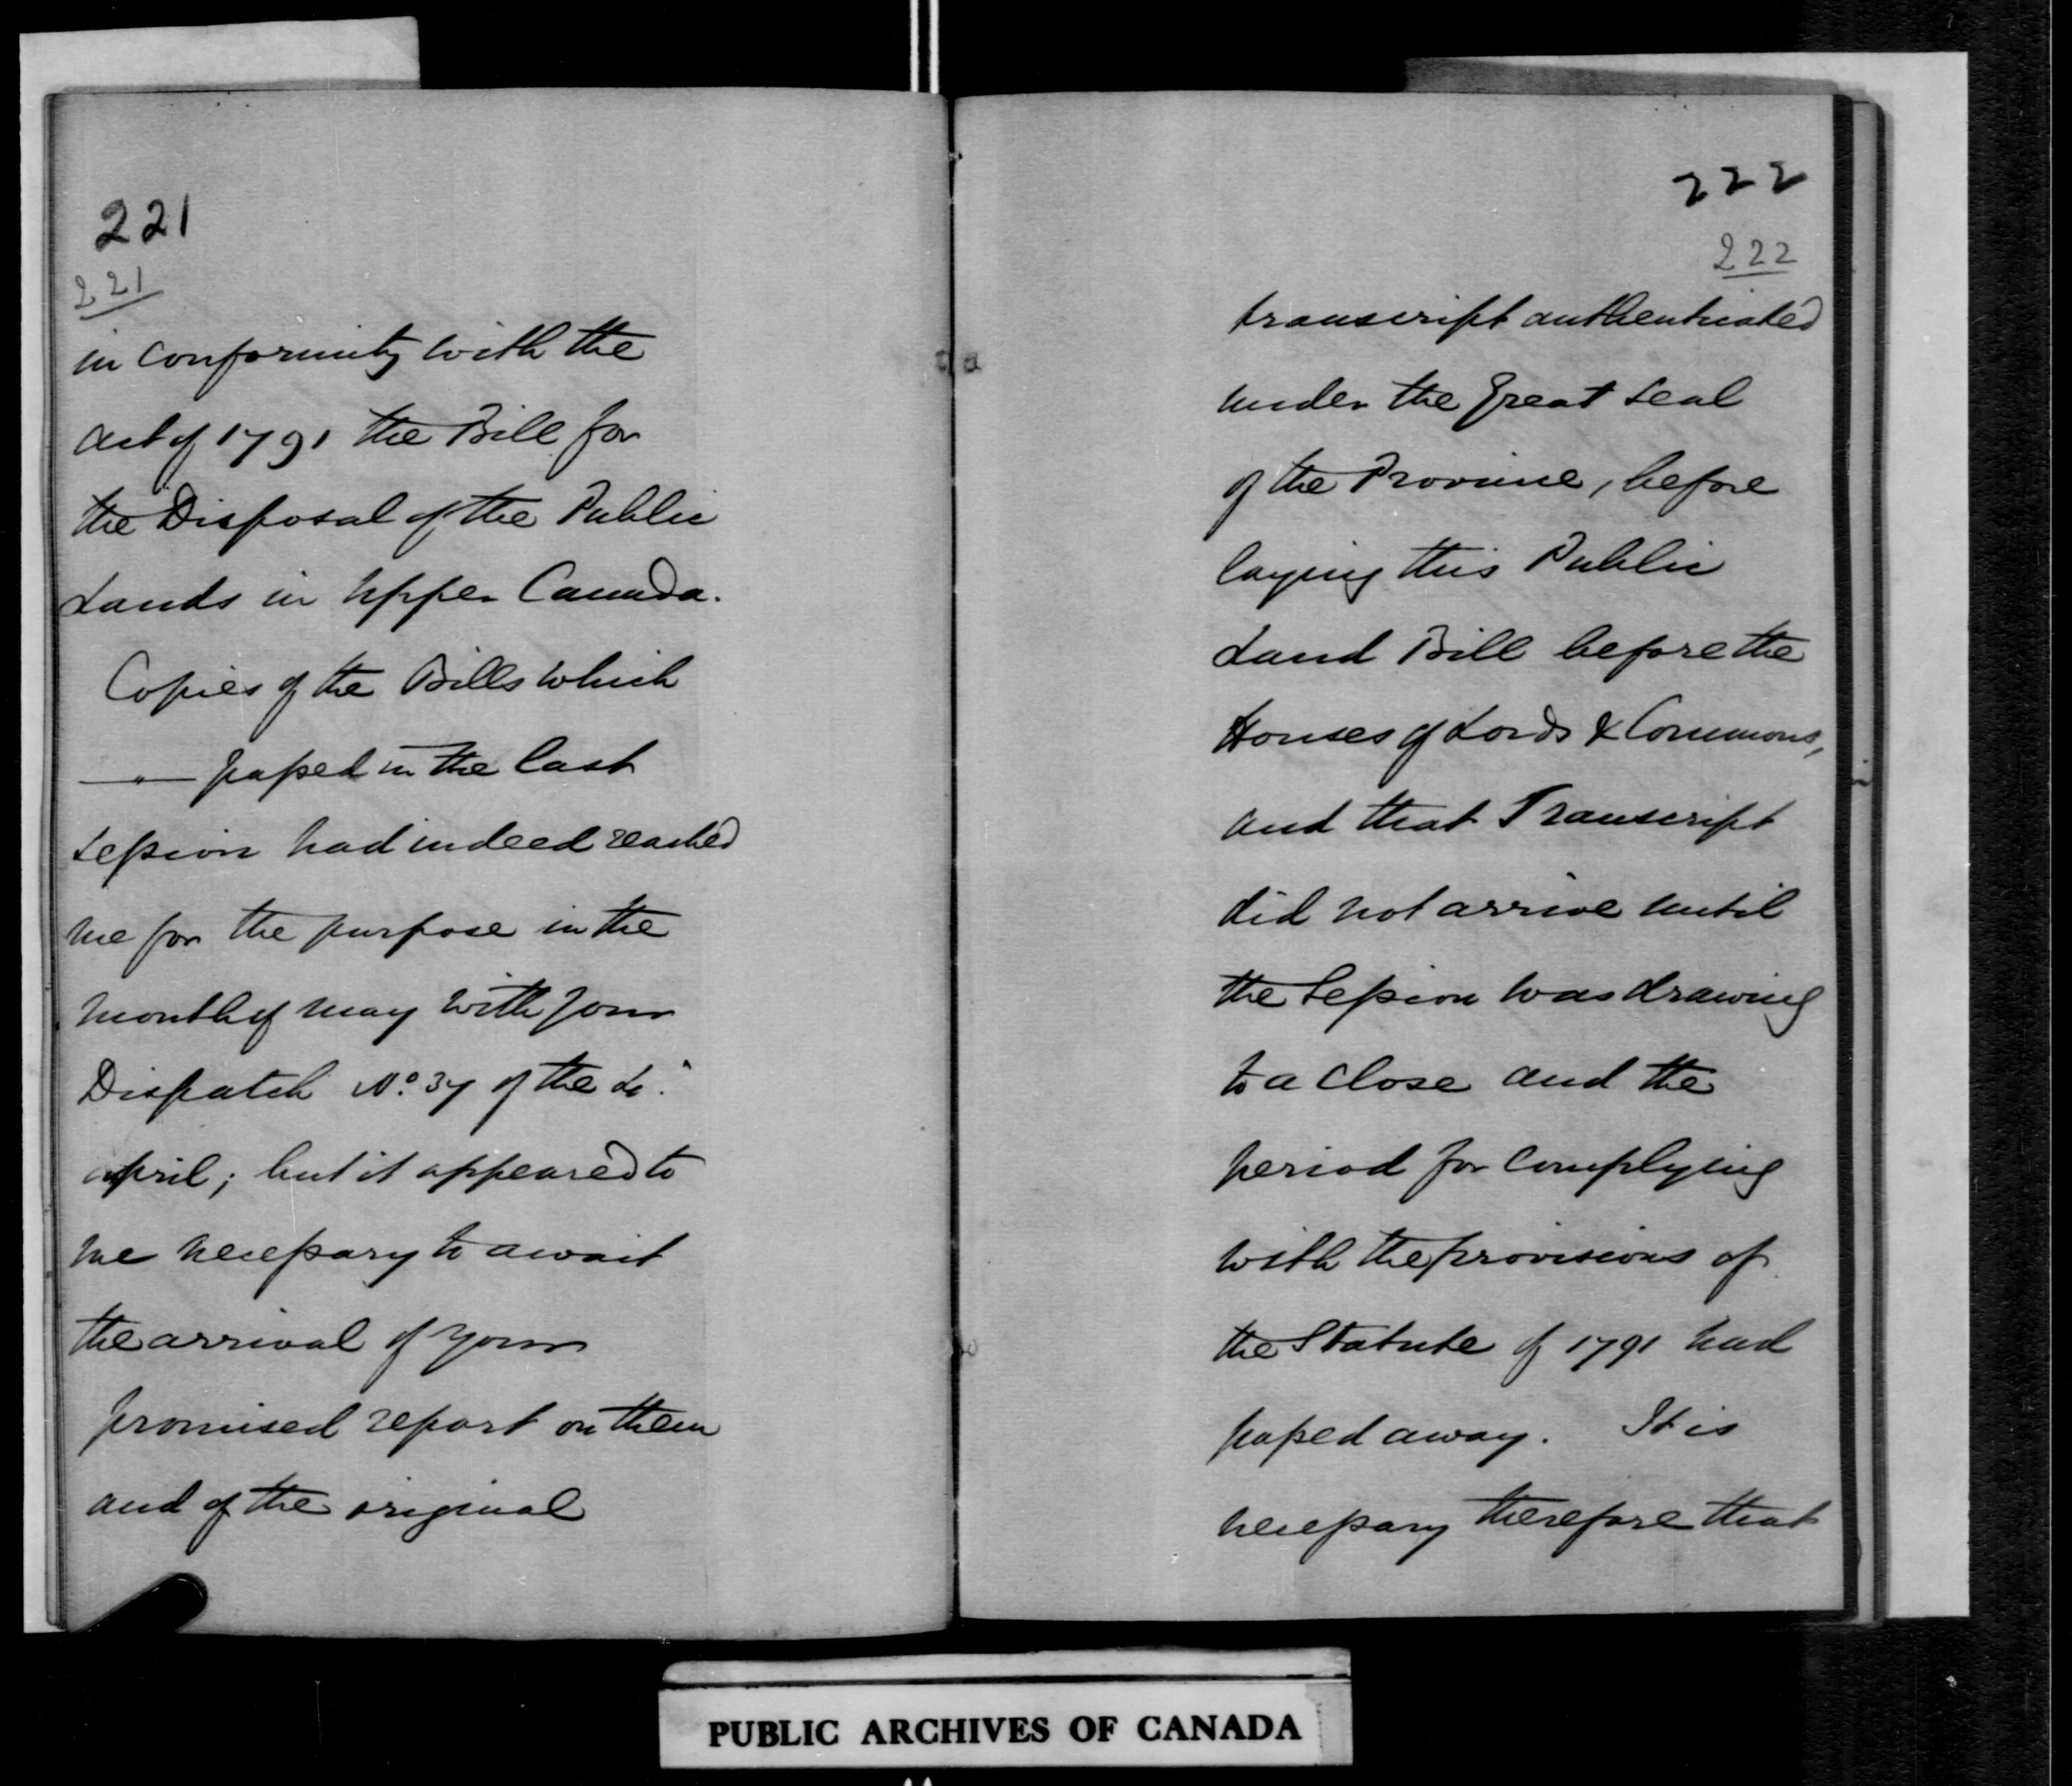 221
221
in conformity with the
act of 1791 the Bill for
the Disposal of the Public
Lands in Upper Canada.
Copies of the Bills which
passed in the last
Session had indeed reached
me for the purpose in the
month of may with your
Dispatch No. 37 of the
april; but it appeared to
me necessary to await
the arrival of your
promised report on them
and of the original
222
222
transcript authenticated
under the Great Seal
of the Province, before
laying this Public
Land Bill before the
Houses of Lords & Commons,
and that Transcript
did not arrive until
the Session was drawing
to a close and the
period for complying
with the provisions of
the Statute of 1791 had
passed away. It is
necessary therefore that
PUBLIC ARCHIVES OF CANADA